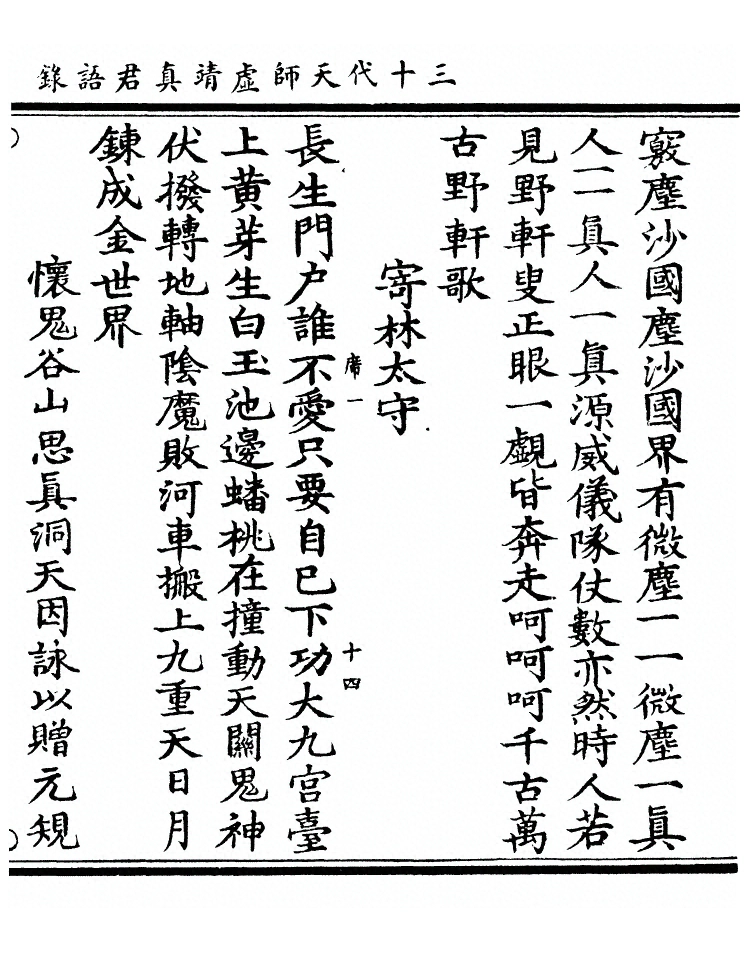 三十代天師虛靖真君語錄
竅塵沙國塵沙國界有微塵一一微塵一眞
人一一眞人一眞源威儀隊仗數亦然時人若
見野軒叟正眼一覷皆奔走呵呵呵千古萬
古野軒歌
寄林太守
長生門户誰不愛只要自已下功大九宮臺
席一
十四
上黃芽生白玉池邊蟠桃在撞動天關鬼神
伏撥轉地軸陰魔敗河車搬上九重天日月
鍊成金世界
懷鬼谷山思眞洞天因詠以贈元規